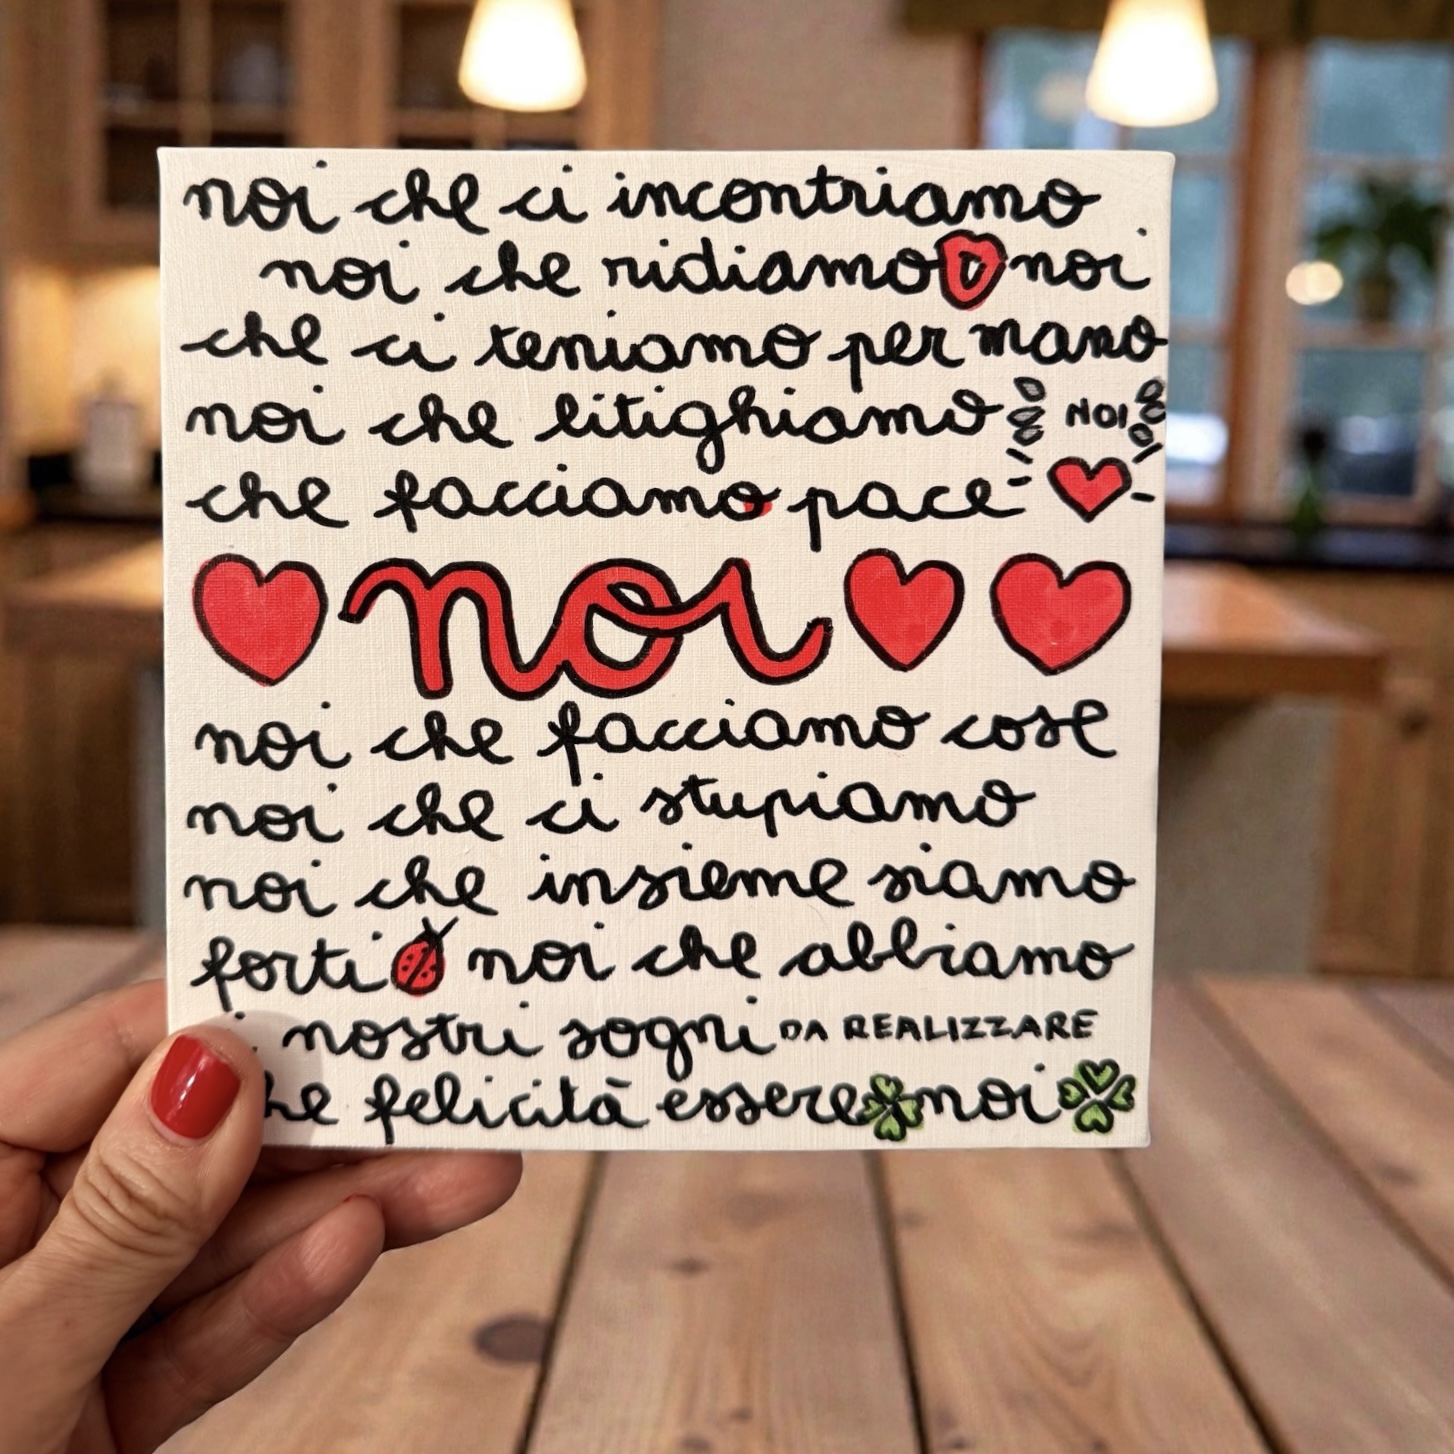 noi che ci incontriamo
noi che ridiamo noi
che ci teniamo per mano
noi che litighiamo NOI
che facciamo pace
noi
noi che facciamo cose
noi che ci stupiamo
noi che insieme siamo
forti noi che abbiamo
i nostri sogni DA REALIZZARE
he felicità essere noi